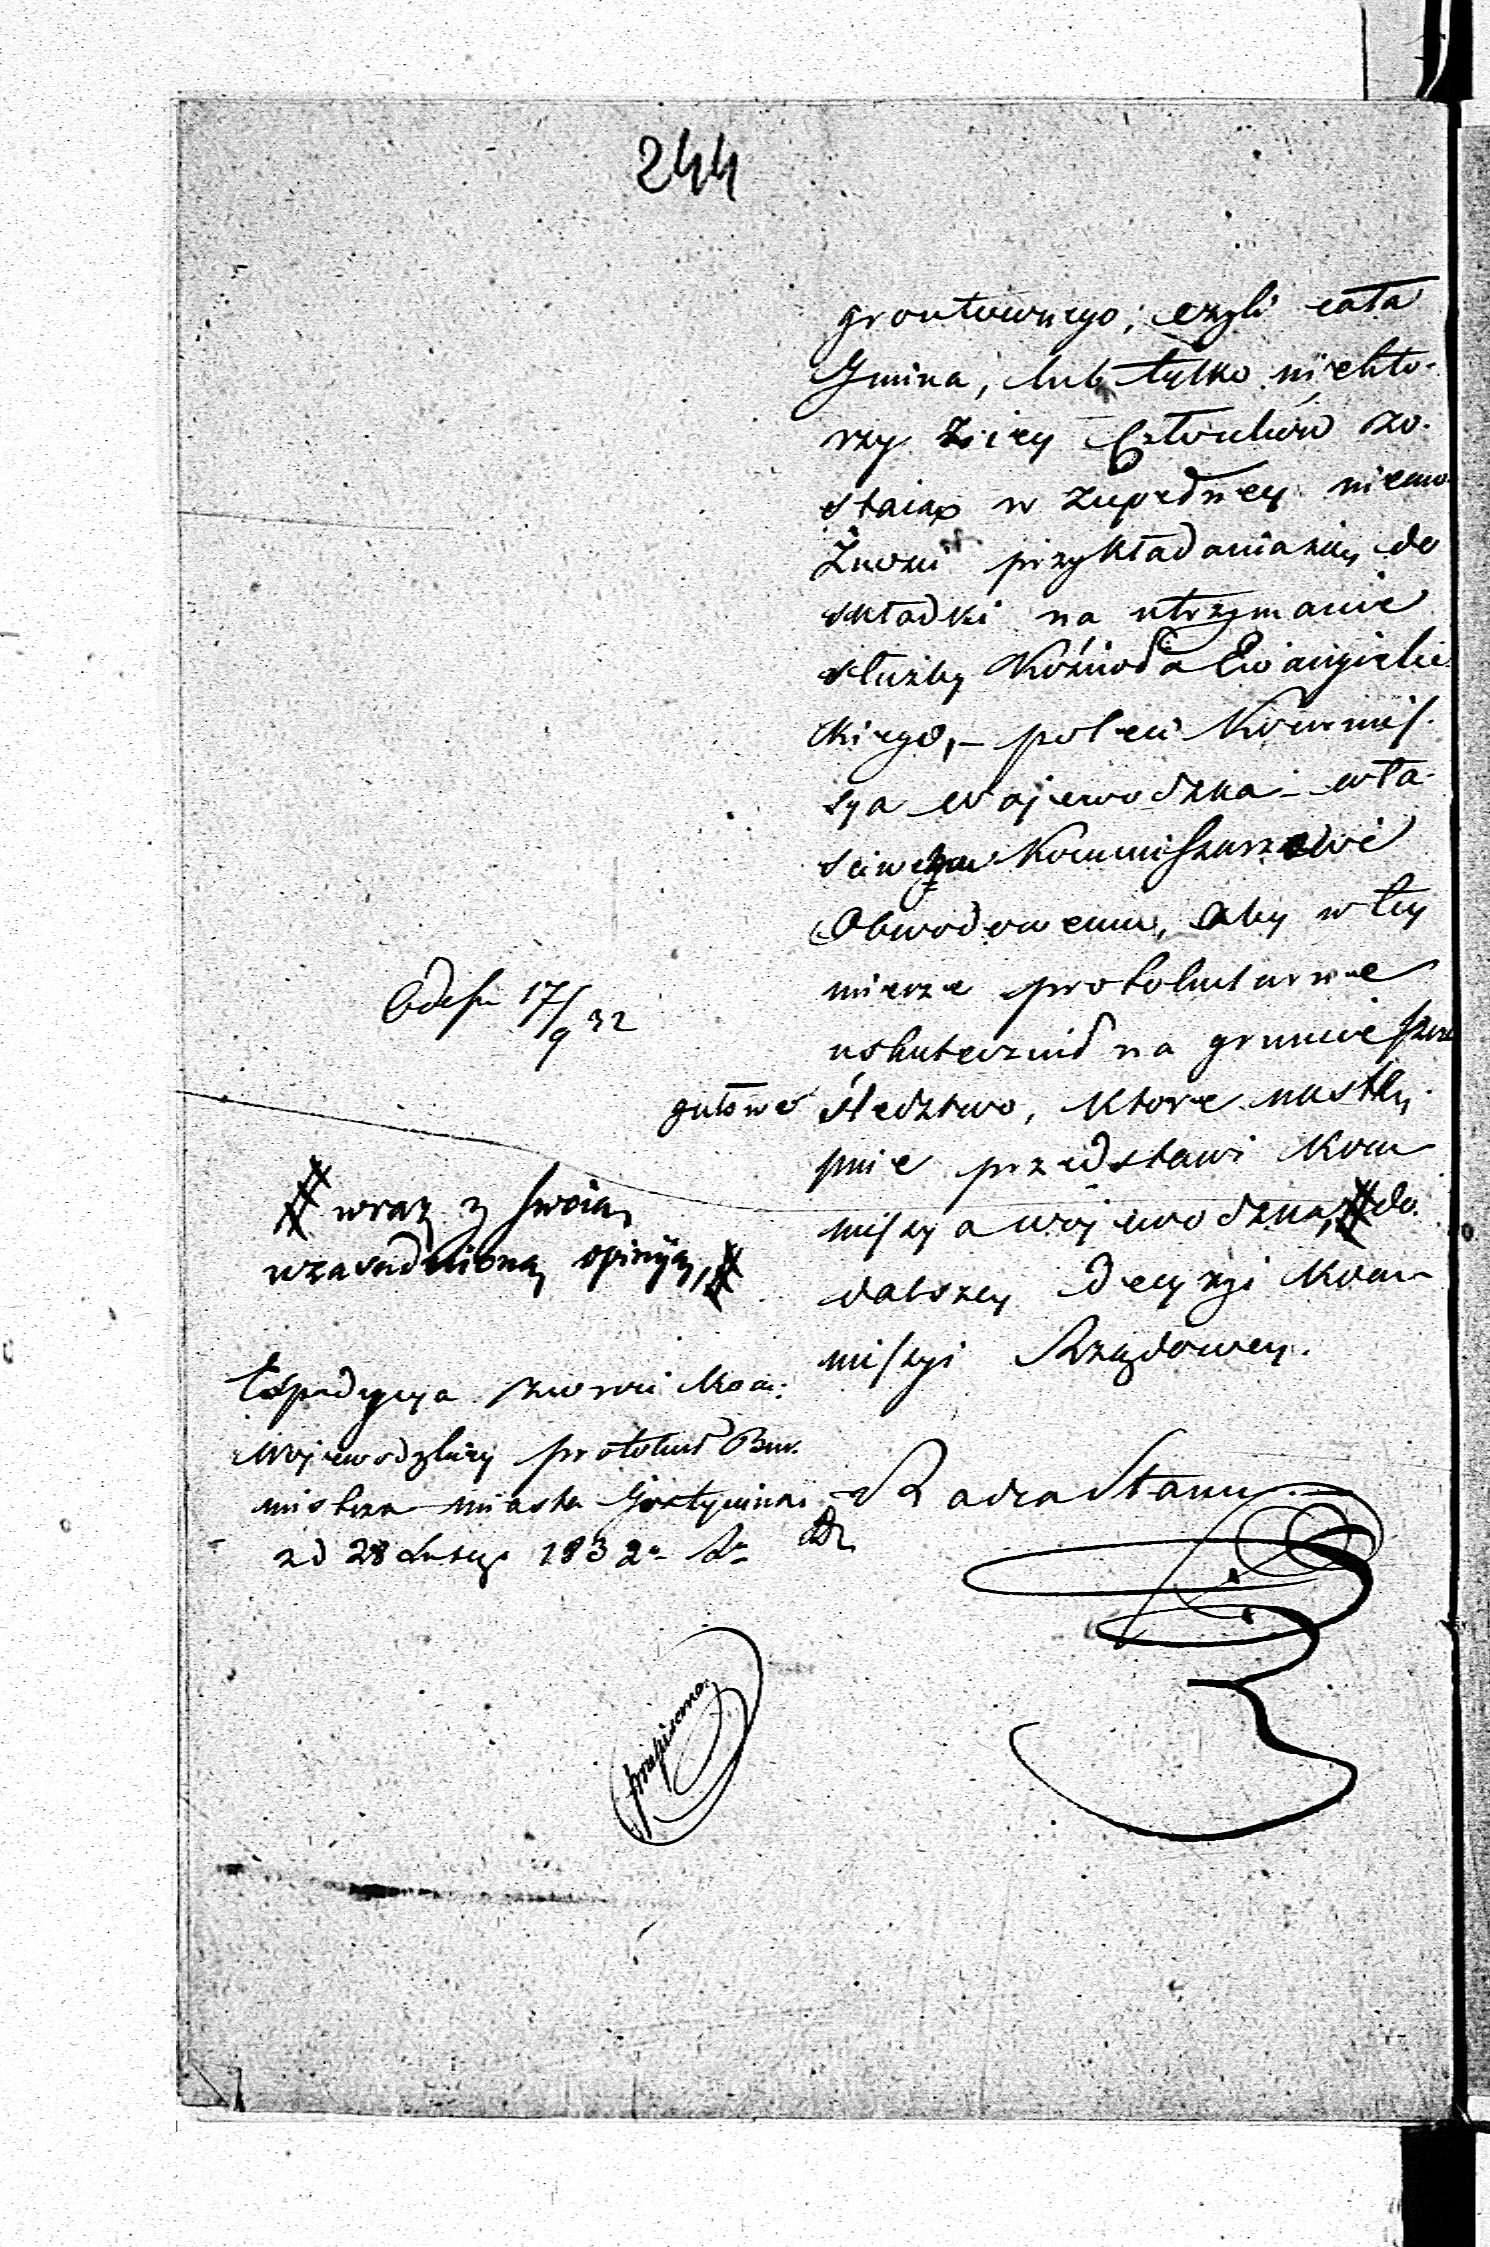 244
grontownego; czyli cała
Gmina, lub tylko niekto-
rzy z iey Członków zo-
staią w zupełney niemo-
żności przykładania się do
składki na utrzymanie
służby Kościoła Ewangielic-
kiego, – poleci Kommis-
sya Wojewodzka – wła-
sciwemu Kommissarzowi
Obwodowemu, aby w tey
mierze protokularne
uskutecznił na gruncie
śledztwo, ktore nastę-
pnie przedstawi Kom-
missya wojewodzka, # do
dalszey decyzyi Kom-
missyi Rządowey.
Radca Stanu
17/9 32
# wraz z swoią
uzasadnioną opinią, #
Expedycya zwroci Kom:
Wojewodzkiey protokuł Bur-
mistrza miasta Gostynina
z d 28 Lutego 1832
przepisano